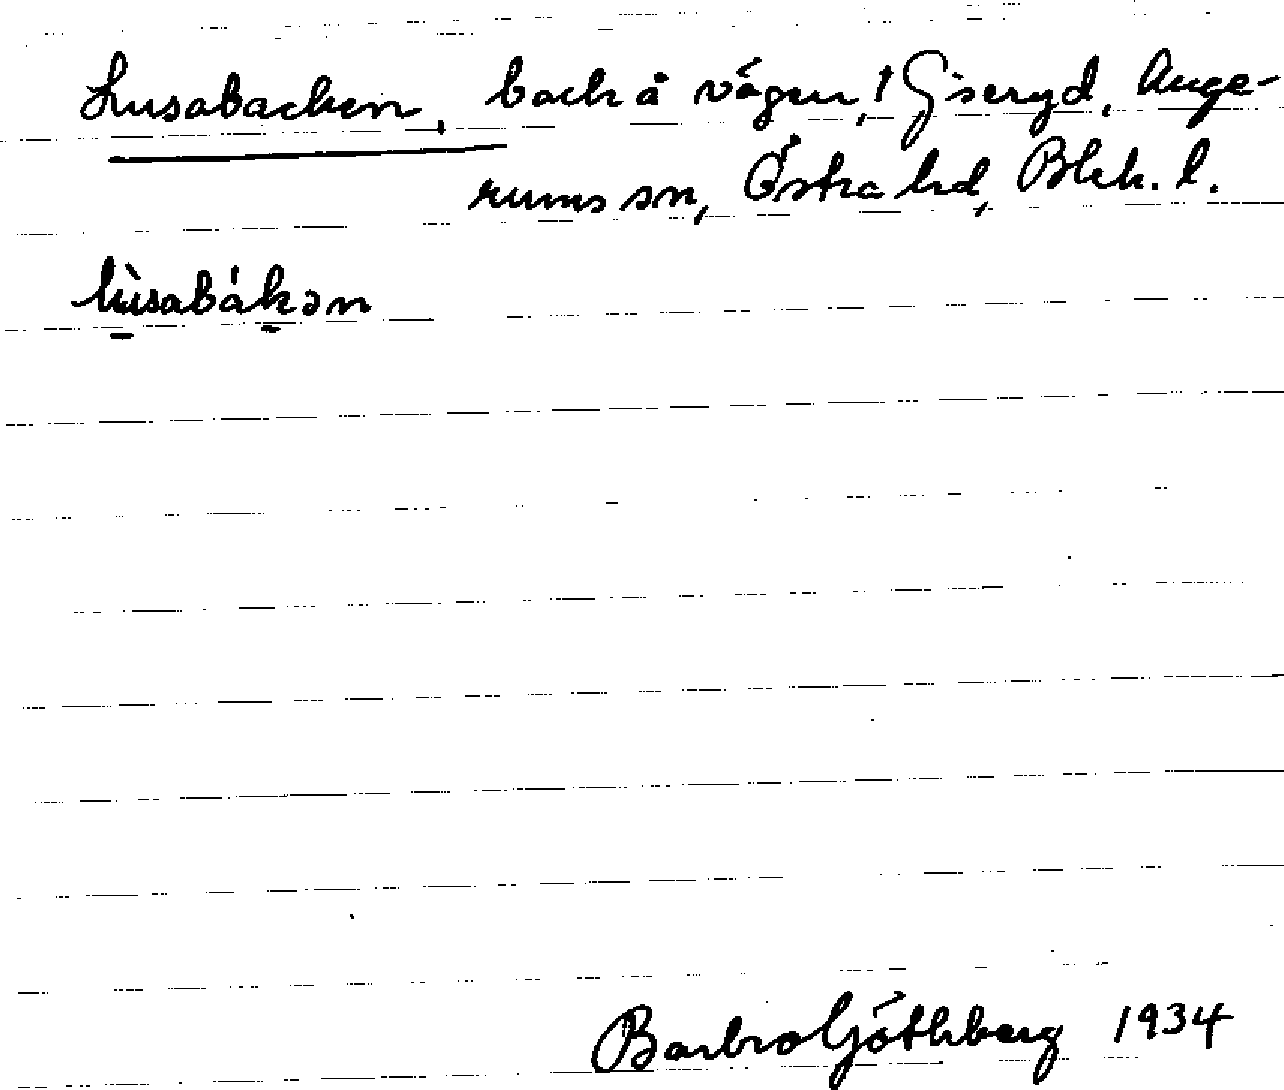 Lusabacken, back å vägen, 1 Giseryd, Auge-
rums sn, Östra hd, Blek. l.
lùsabákən
Barbro Göthberg 1934